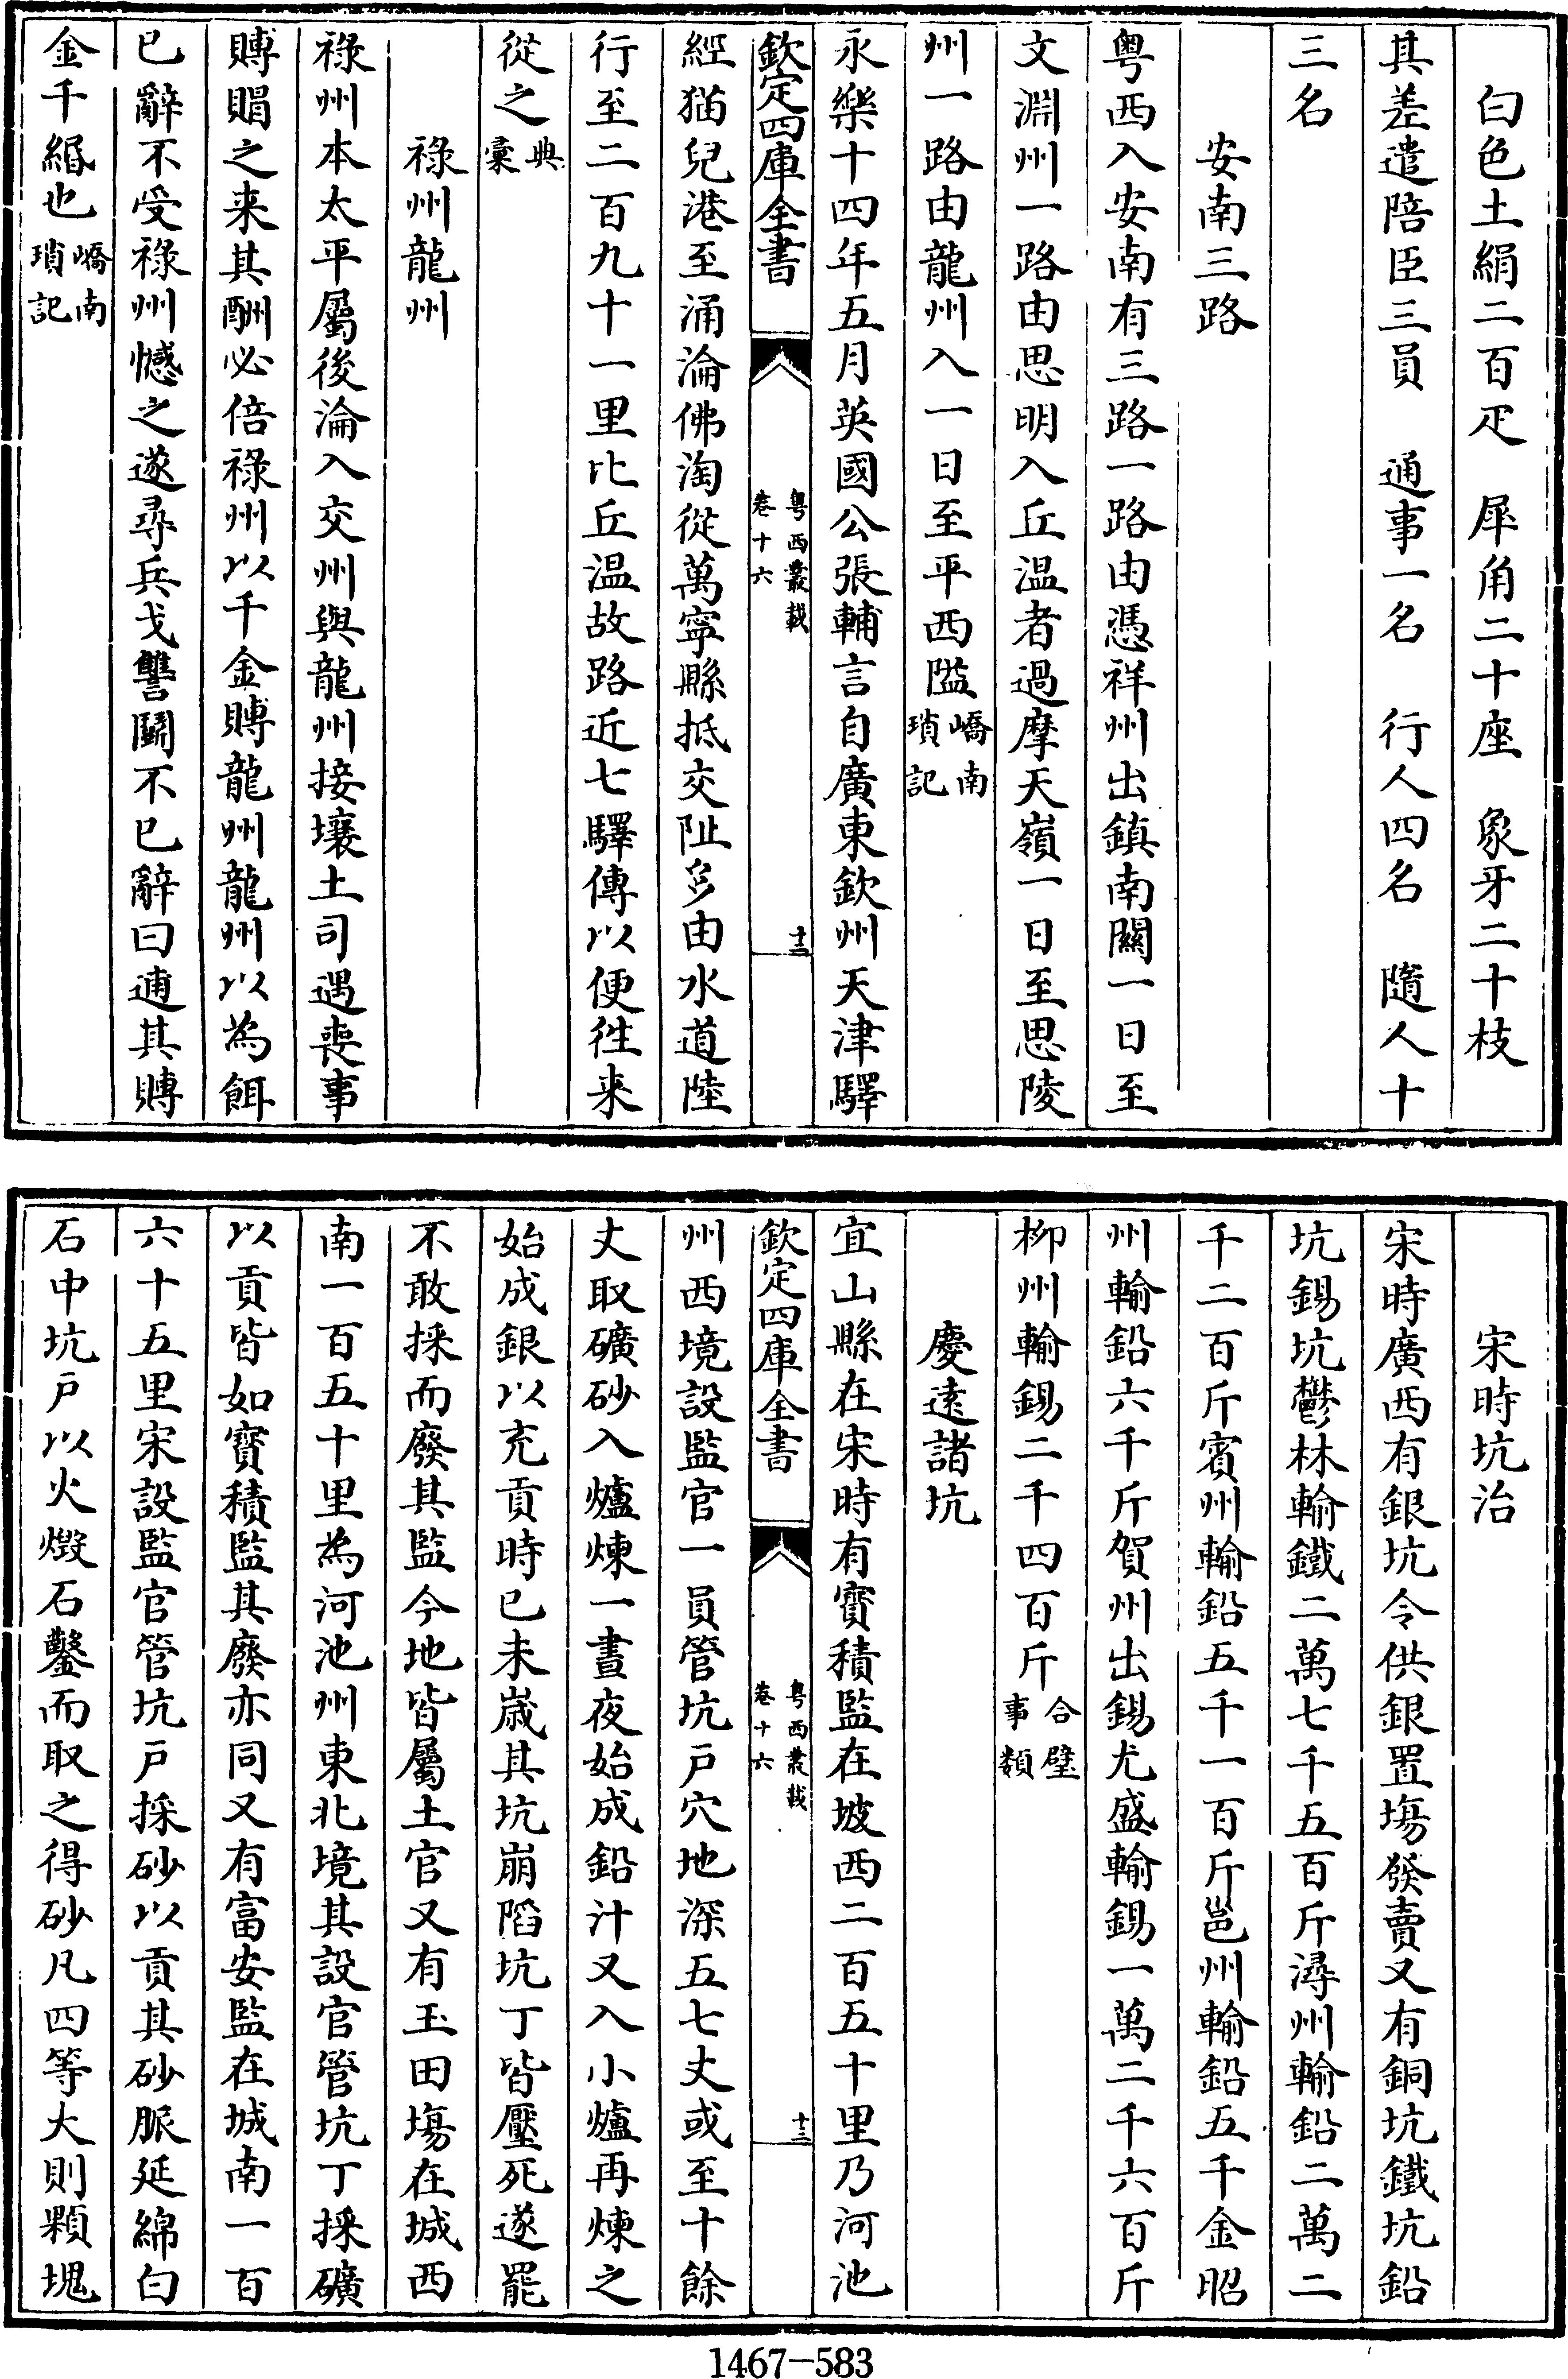 白色土絹二百疋　犀角二十座　象牙二十枝
其差遣陪臣三員　通事一名　行人四名　隨人十
三名
安南三路
粤西入安南有三路一路由憑祥州出鎮南關一日至
文淵州一路由思明入丘温者過摩天嶺一日至思陵
州一路由龍州入一日至平西隘嶠南瑣記
永樂十四年五月英國公張輔言自廣東欽州天津驛
欽定四庫全書
粤西叢載
卷十六
十三
經猫兒港至涌淪佛淘從萬寜縣抵交阯多由水道陸
行至二百九十一里比丘温故路近七驛傳以便徃来
從之典彙
祿州龍州
祿州本太平屬後淪入交州與龍州接壤土司遇喪事
賻賵之来其酬必倍祿州以千金賻龍州龍州以為餌
已辭不受祿州憾之遂尋兵戈讐鬭不已辭曰逋其賻
金千緡也嶠南瑣記
宋時坑冶
宋時廣西有銀坑令供銀置塲發賣又有銅坑鐵坑鉛
坑錫坑鬱林輸鐵二萬七千五百斤潯州輸鉛二萬二
千二百斤賓州輸鉛五千一百斤邕州輸鉛五千金昭
州輸鉛六千斤賀州出錫尤盛輸錫一萬二千六百斤
柳州輸錫二千四百斤合璧事類
慶逺諸坑
宜山縣在宋時有寳積監在坡西二百五十里乃河池
欽定四庫全書
粤西叢載
卷十六
十三
州西境設監官一員管坑戸穴地深五七丈或至十餘
丈取礦砂入爐煉一晝夜始成鉛汁又入小爐再煉之
始成銀以充貢時已未歲其坑崩陷坑丁皆壓死遂罷
不敢採而廢其監今地皆屬土官又有玉田塲在城西
南一百五十里為河池州東北境其設官管坑丁採礦
以貢皆如寳積監其廢亦同又有富安監在城南一百
六十五里宋設監官管坑戸採砂以貢其砂脈延綿白
石中坑戸以火煅石鑿而取之得砂凡四等大則顆塊
1467-583